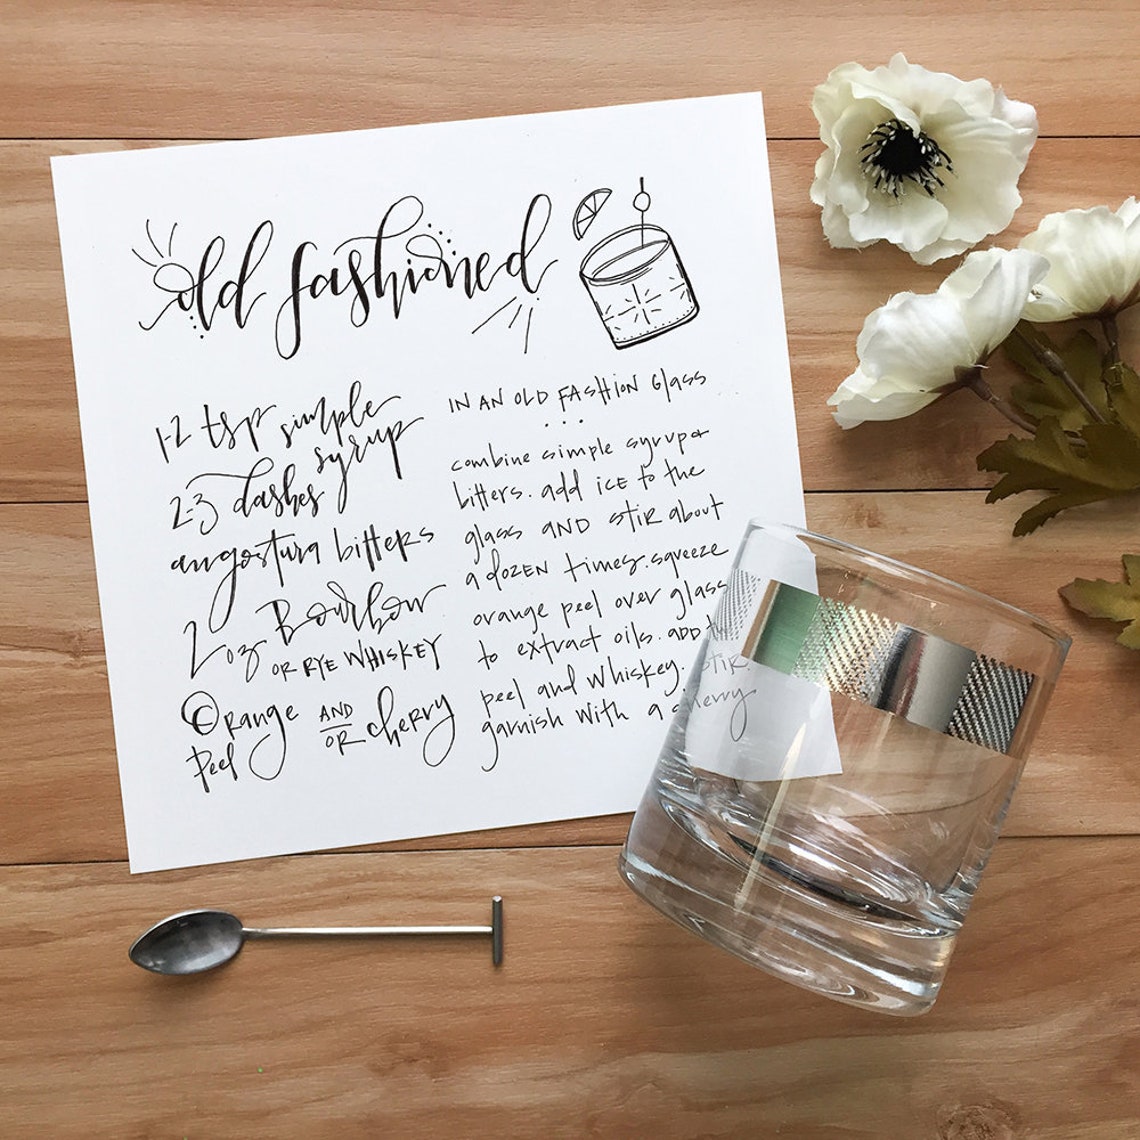 old fashioned
1-2 tsp simple
syrup
2-3 dashes
angostura bitters
2 oz Bourbon
OR RYE WHISKEY
Orange AND OR cherry
Peel
IN AN OLD FASHION Glass
...
combine simple syrup +
bitters. add ICE to the
glass AND STIR about
a dozen times. squeeze
orange peel over glass
to extract oils. ADD the
peel and whiskey. STIR
garnish with a cherry